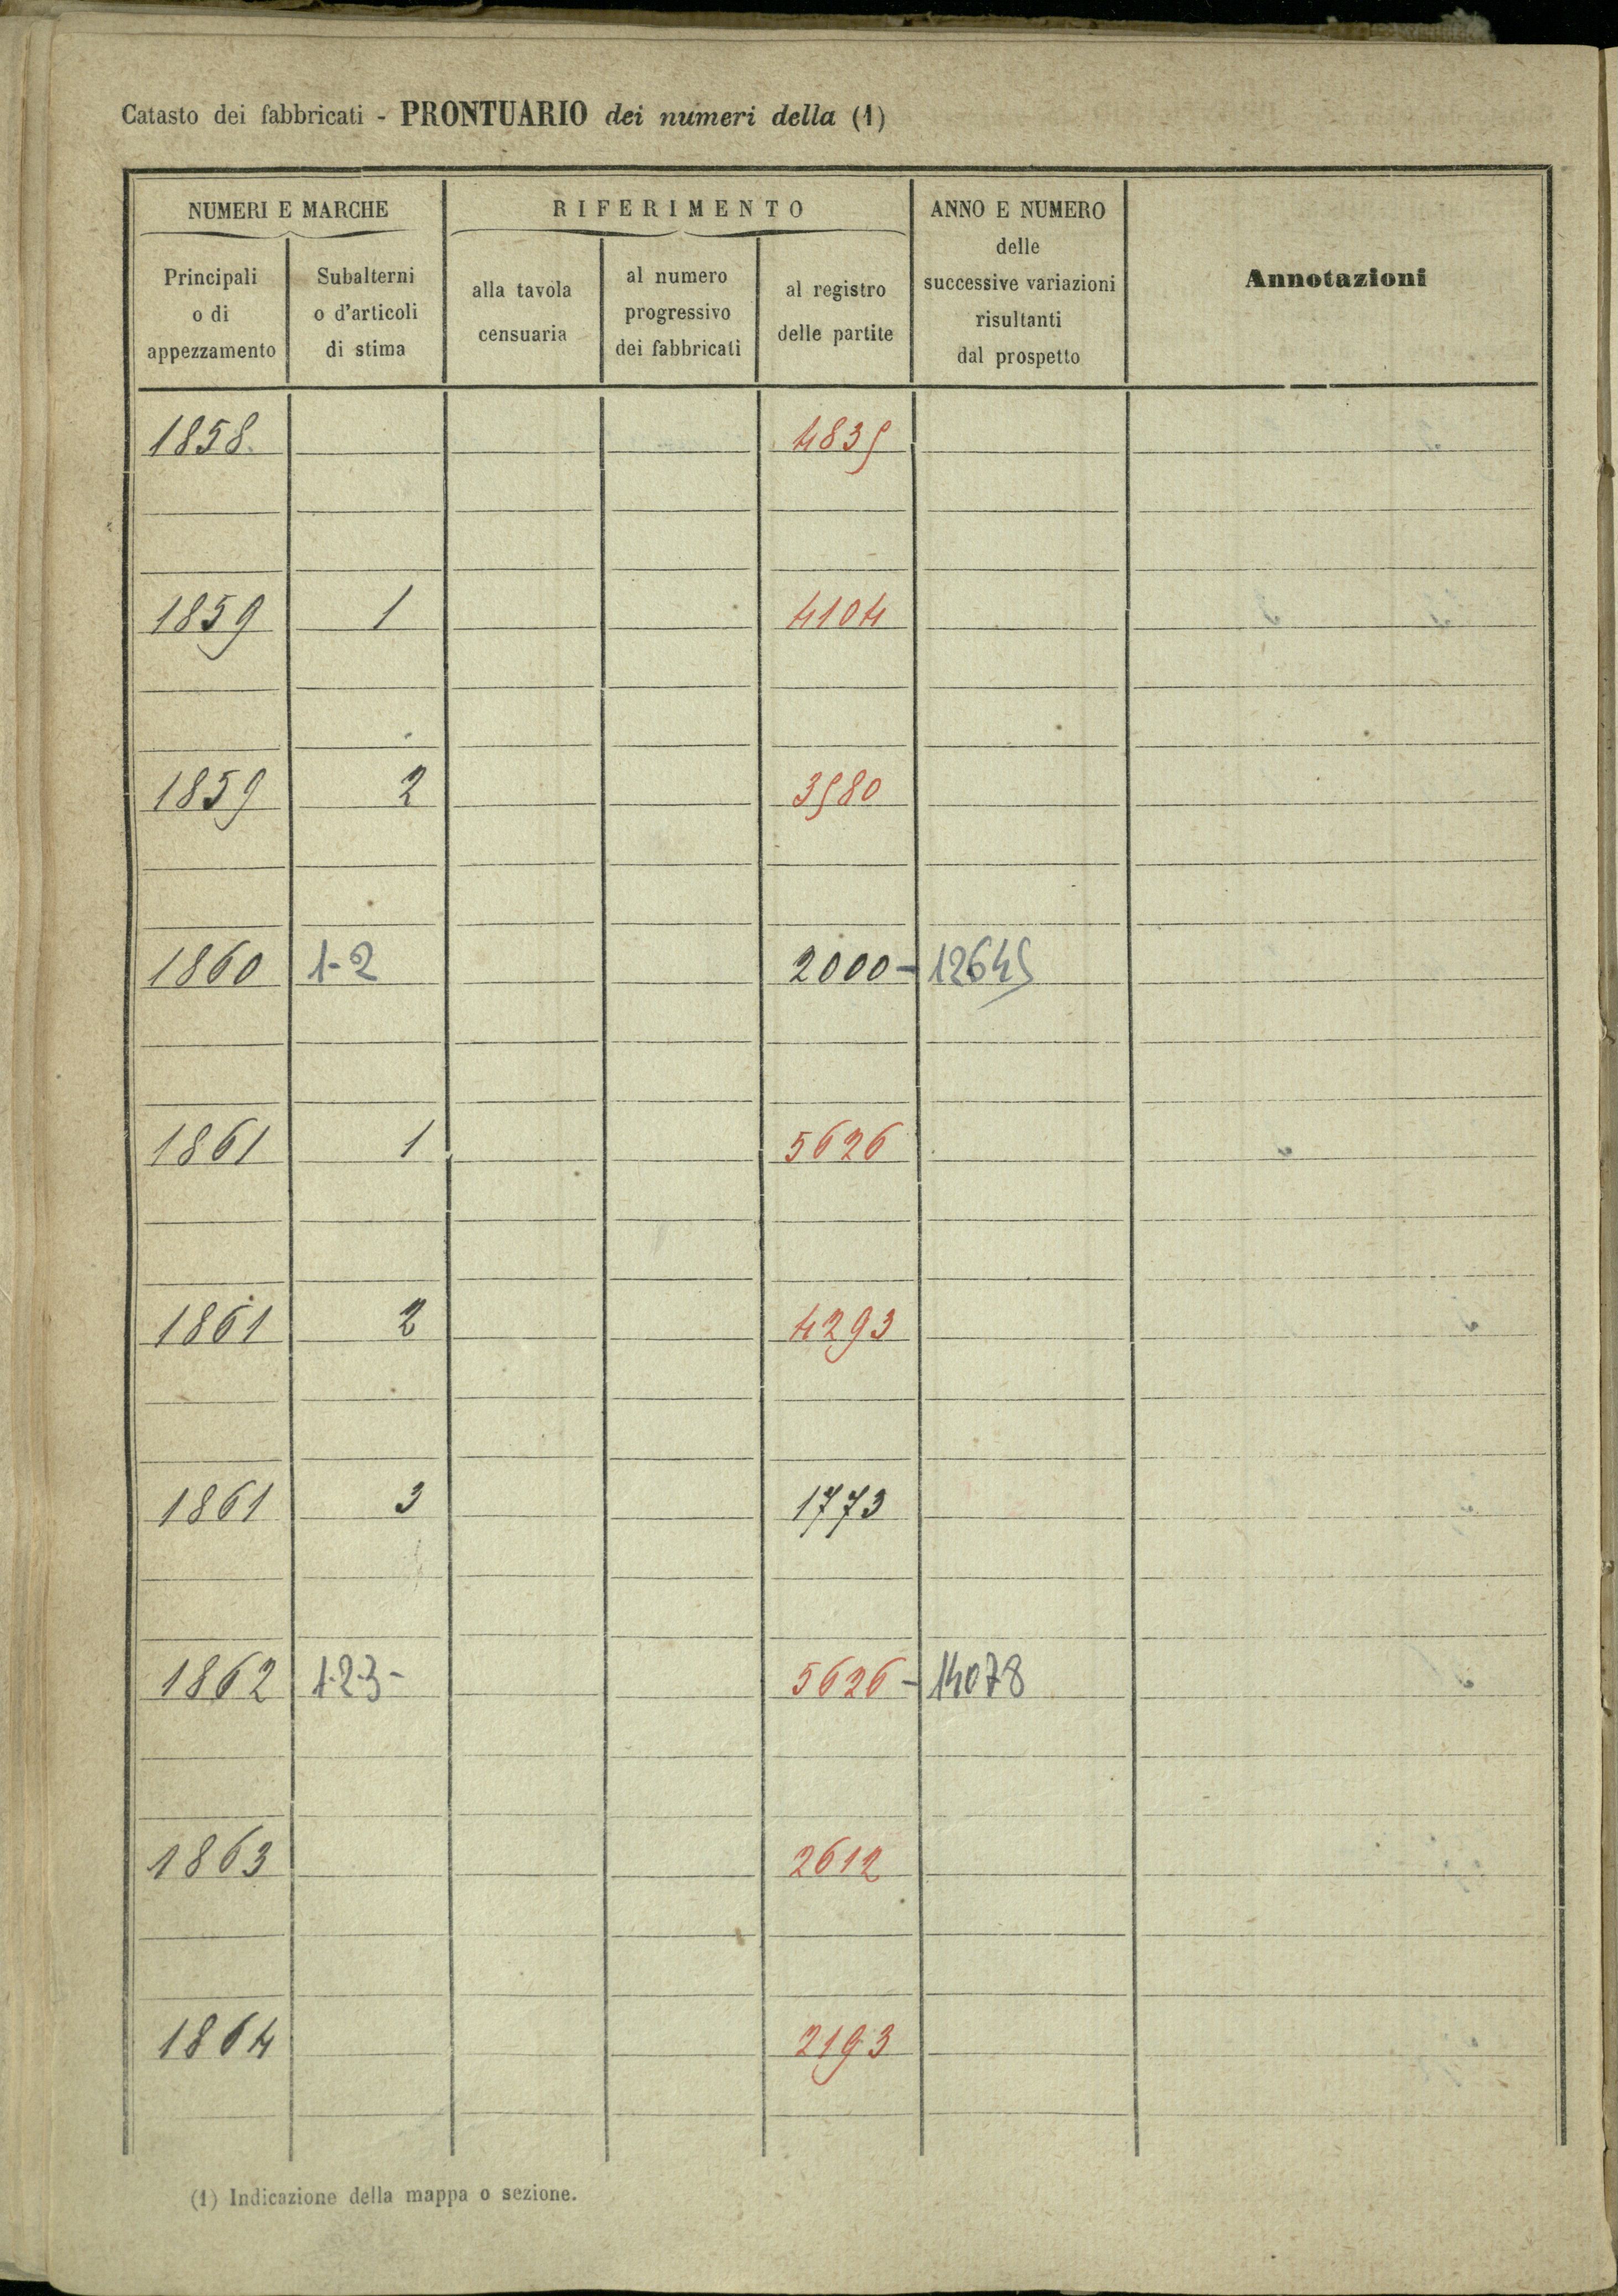 Catasto dei fabbricati - PRONTUARIO dei numeri della (1)
NUMERI E MARCHE
RIFERIMENTO
ANNO E NUMERO
delle
successive variazioni
risultanti
dal prospetto
Annotazioni
Principali
o di
appezzamento
Subalterni
o d'articoli
di stima
alla tavola
censuaria
al numero
progressivo
dei fabbricati
al registro
delle partite
1858. 4835
1859 1 4104
1859 2 3580
1860 1-2 2000 - 12645
1861 1 5626
1861 2 4293
1861 3 1773
1862 1-2-3- 5626 - 14078
1863 2612
1864 2193
(1) Indicazione della mappa o sezione.